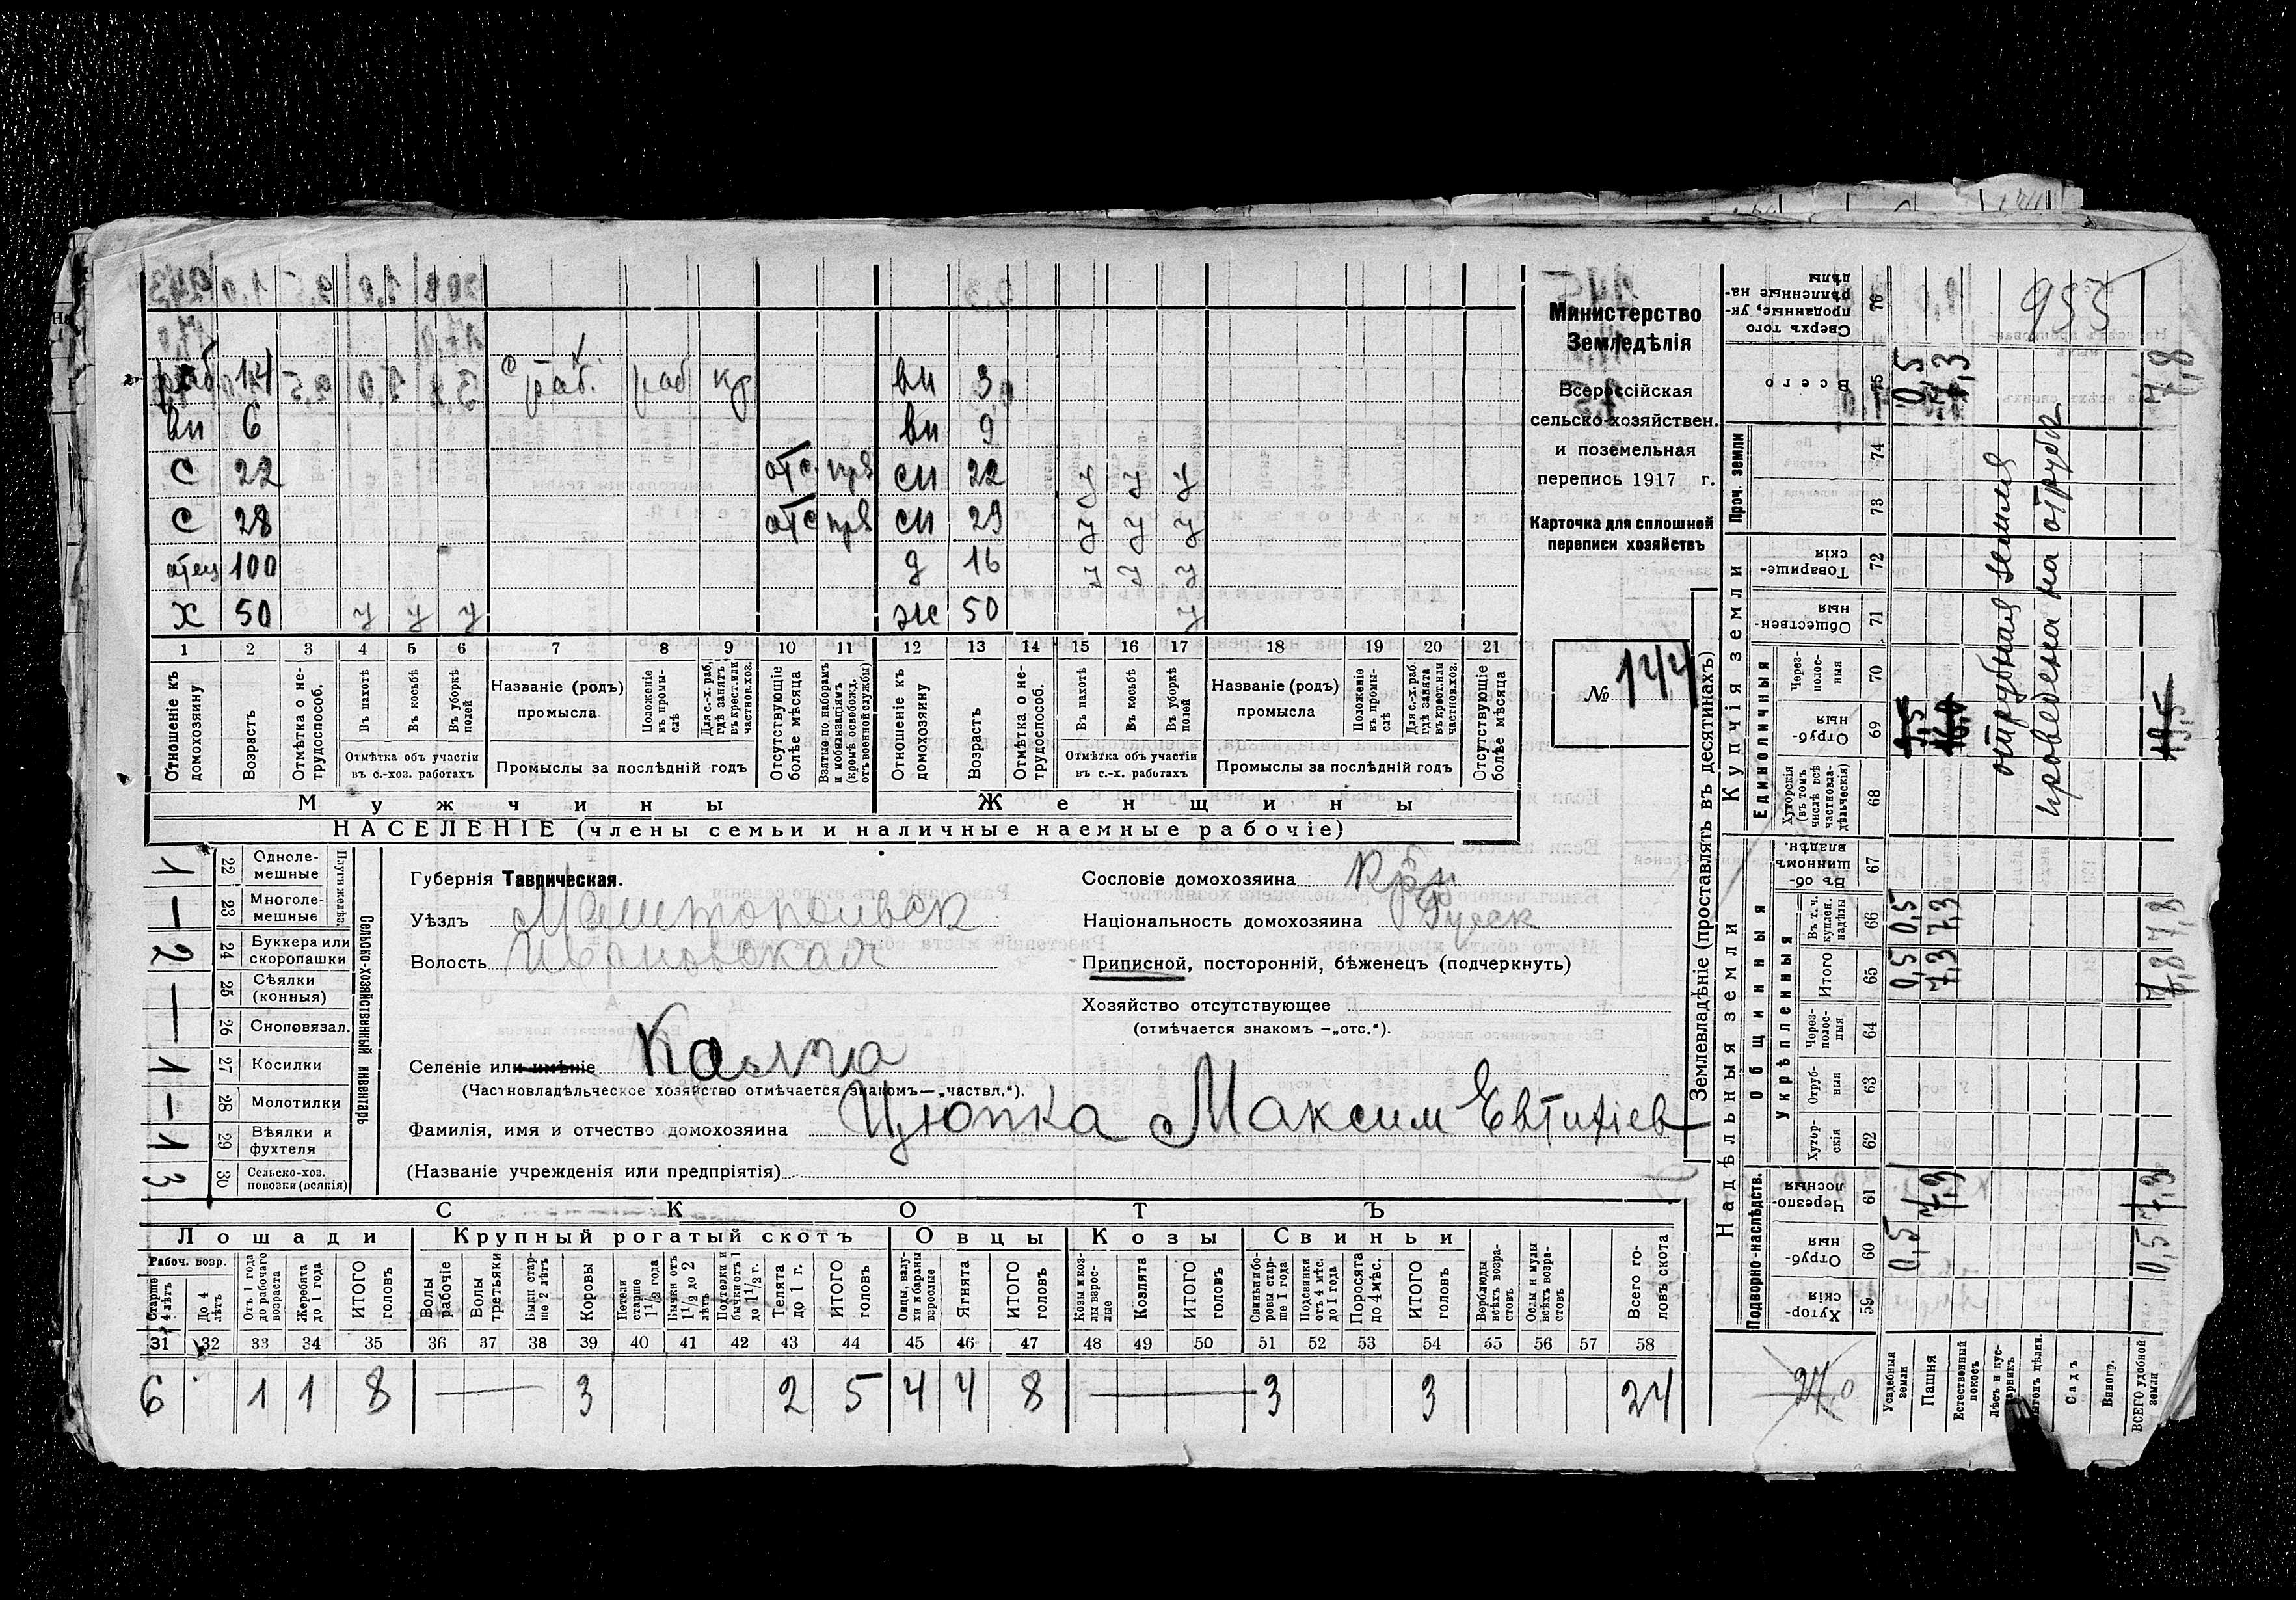 955
раб. 14 раб. раб кр вн 3
вн 6 вн 9
с 22 отс. прв сн 22 у у у
с 28 отс прв сн 29 у у у
отец 100 д 16 у у у
х 50 у у у ж 50 у
1 2 3 4 5 6 7 8 9 10 11 12 13 14 15 16 17 18 19 20 21
Отношеніе къ домохозяину
Возрастъ
Отмѣтка о нетрудоспособ.
Въ пахотѣ
Въ косьбѣ
Въ уборкѣ полей
Отмѣтка объ участіи въ с.-хоз. работахъ
Названіе (родъ) промысла
Положеніе въ промыслѣ
Для с.-х. раб, гдѣ занятъ въ крест. или частнов. хоз.
Промыслы за послѣдній годъ
Отсутствующіе болѣе мѣсяца
Взятые по наборамъ и мобилизаціямъ (кромѣ освобожд. отъ военной службы)
Отношеніе къ домохозяину
Возрастъ
Отмѣтка о нетрудоспособ.
Въ пахотѣ
Въ косьбѣ
Въ уборкѣ полей
Отмѣтка объ участіи въ с.-х. работахъ
Названіе (родъ) промысла
Положеніе въ промыслѣ
Для с.-х. раб. гдѣ занята въ крест. или частнов. хоз.
Промыслы за послѣдній годъ
Отсутствующіе болѣе мѣсяца
Мужчины Женщины
НАСЕЛЕНІЕ (члены семьи и наличные наемные рабочіе)
Министерство
Земледѣлія
Всероссійская
сельско-хозяйствен.
и поземельная
перепись 1917 г.
Карточка для сплошной
переписи хозяйствъ
№ 144
Сельско-хозяйственный инвентарь
Плуги жел.
1 22 Однолемешные
— 23 Многолемешные
2 24 Буккера или скоропашки
— 25 Сѣялки (конныя)
26 Сноповязал.
1 27 Косилки
— 28 Молотилки
1 29 Вѣялки и фухтеля
3 30 Сельско-хоз. повозки (всякія)
Губернія Таврическая.
Уѣздъ Мелитопольск
Волость Ивановская
Сословіе домохозяина Кр
Національность домохозяина Русск
Приписной, посторонній, бѣженецъ (подчеркнуть)
Хозяйство отсутствующее
(отмѣчается знакомъ —„отс.“).
Селеніе или имѣніе Калга
(Частновладѣльческое хозяйство отмѣчается знакомъ—„частвл.“).
Фамилія, имя и отчество домохозяина Цюпка Максим Евтихіев
(Названіе учрежденія или предпріятія)
СКОТЪ
Лошади Крупный рогатый скотъ Овцы Козы Свиньи
Рабоч. возр.
Старше 4 лѣтъ
До 4 лѣтъ
Отъ 1 года до рабочаго возраста
Жеребята до 1 года
ИТОГО головъ
Волы рабочіе
Волы третьяки
Быки старше 2 лѣтъ
Коровы
Нетели старше 1 1/2 года
Бычки отъ 1 1/2 до 2 лѣтъ
Подтелки и бычки отъ 1 до 1 1/2 г.
Телята до 1 г.
ИТОГО головъ
Овцы, валухи и бараны взрослые
Ягнята
ИТОГО головъ
Козы и козлы взрослые
Козлята
ИТОГО головъ
Свиньи и боровы старше 1 года
Подсвинки отъ 4 мѣс. до 1 года
Поросята до 4 мѣс.
ИТОГО головъ
Верблюды всѣхъ возрастовъ
Ослы и мулы всѣхъ возрастовъ
Всего головъ скота
31 32 33 34 35 36 37 38 39 40 41 42 43 44 45 46 47 48 49 50 51 52 53 54 55 56 57 58
6 1 1 8 — 3 2 5 4 4 8 — 3 3 24
Землевладѣніе (проставлять въ десятинахъ)
Надѣльныя земли
Купчія земли
Проч. земли
Подворно-наслѣдств.
Общинныя
Укрѣпленныя
Единоличныя
59 Хуторскія
60 Отрубныя 0,5 0,5
61 Черезполосныя 7,3 7,3
62 Хуторскія
63 Отрубныя
64 Черезполосныя
65 Итого 0,5 7,3 7,8
66 Въ т. ч. куплен. надѣлы 0,5 7,3 7,8
67 Въ общинномъ владѣн.
68 Хуторскія (въ томъ числѣ всѣ частновладѣльческія)
69 Отрубныя
70 Черезполосныя
71 Общественныя
72 Товарищескія
73
74
75 Всего 0,5 7,3 7,8
76 Сверхъ того проданные, укрѣпленные надѣлы
Усадебныя земли
Пашня
Естественный покосъ
Лѣсъ и кустарникъ
Садъ
Виногр.
ВСЕГО удобной земли
отрубная земля
проведена на отрубы